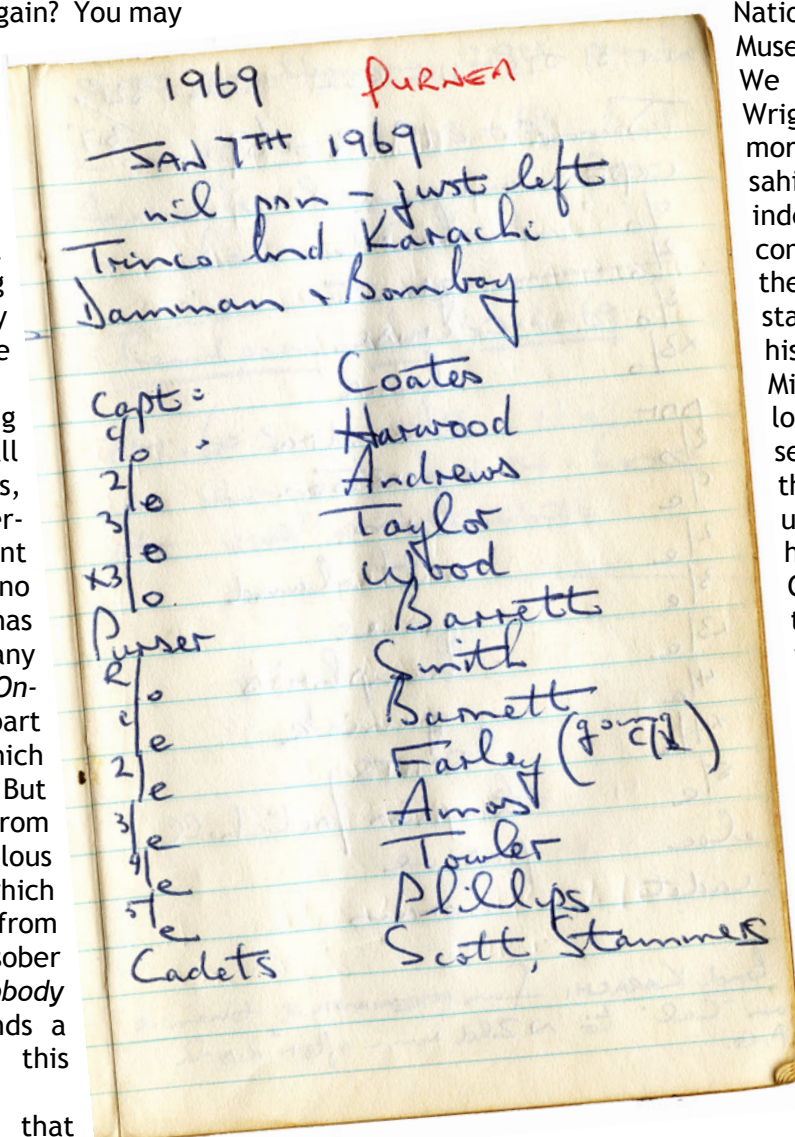 gain? You may
g
y
e
g
ll
s,
er-
nt
no
has
any
On-
part
hich
But
rom
lous
which
from
sober
obody
nds a
this
that
1969 PURNEA
JAN 7TH 1969
nil pnn - just left
Trinco bnd Karachi
Damman + Bombay
Capt: Coates
C/o Harwood
2/o Andrews
3/o Taylor
x3/o Wood
Purser Barrett
R/o Smith
c/e Burnett
2/e Farley (going
3/e Amos
4/e Towler
5/e Phillips
Cadets Scott, Stammers
Natio
Muse
We
Wrig
mor
sahi
inde
con
the
sta
his
Mi
lo
se
th
u
h
C
t